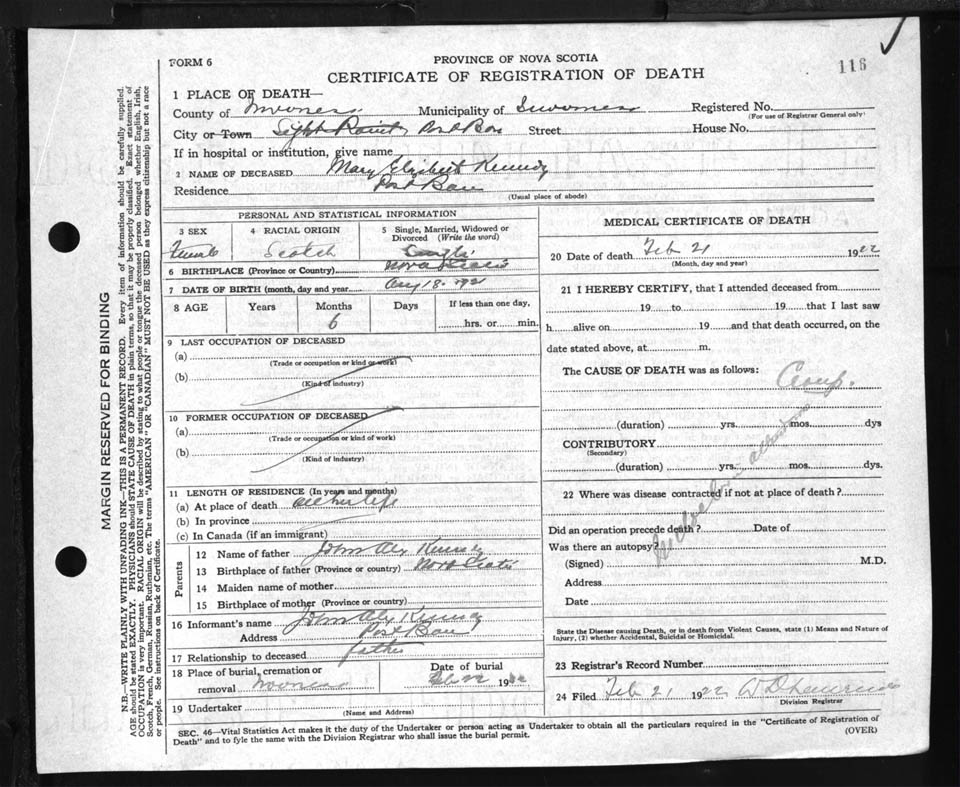 FORM 6
PROVINCE OF NOVA SCOTIA
116
CERTIFICATE OF REGISTRATION OF DEATH
1 PLACE OF DEATH—
County of Inverness Municipality of Inverness Registered No.
(For use of Registrar General only)
City or Town Sight Point Port Ban Street House No.
If in hospital or institution, give name
2 NAME OF DECEASED Mary Elizabeth Kennedy
Residence Port Ban
(Usual place of abode)
PERSONAL AND STATISTICAL INFORMATION
3 SEX 4 RACIAL ORIGIN 5 Single, Married, Widowed or Divorced (Write the word)
Female Scotch Single
6 BIRTHPLACE (Province or Country) Nova Scotia
7 DATE OF BIRTH (month, day and year) Aug 18. 1921
8 AGE Years Months Days If less than one day,
6 hrs. or min.
9 LAST OCCUPATION OF DECEASED
(a)
(Trade or occupation or kind or work)
(b)
(Kind of industry)
10 FORMER OCCUPATION OF DECEASED
(a)
(Trade or occupation or kind of work)
(b)
(Kind of industry)
11 LENGTH OF RESIDENCE (In years and months)
(a) At place of death all her life
(b) In province
(c) In Canada (if an immigrant)
Parents
12 Name of father John Alex Kennedy
13 Birthplace of father (Province or country) Nova Scotia
14 Maiden name of mother
15 Birthplace of mother (Province or country)
16 Informant's name John Alex Kennedy
Address Port Ban
17 Relationship to deceased father
18 Place of burial, cremation or Date of burial
removal Inverness Feb 22 1922
19 Undertaker
(Name and Address)
MEDICAL CERTIFICATE OF DEATH
20 Date of death Feb 21 1922
(Month, day and year)
21 I HEREBY CERTIFY, that I attended deceased from
19 to 19 that I last saw
h alive on 19 and that death occurred, on the
date stated above, at m.
The CAUSE OF DEATH was as follows: Croup.
(duration) yrs. mos. dys
CONTRIBUTORY
(Secondary)
(duration) yrs. mos. dys.
22 Where was disease contracted if not at place of death?
Did an operation precede death? Date of
Was there an autopsy?
(Signed) M.D.
Address
Date
State the Disease causing Death, or in death from Violent Causes, state (1) Means and Nature of
Injury, (2) whether Accidental, Suicidal or Homicidal.
23 Registrar's Record Number
24 Filed Feb 21 1922
Division Registrar
SEC. 46—Vital Statistics Act makes it the duty of the Undertaker or person acting as Undertaker to obtain all the particulars required in the "Certificate of Registration of
Death" and to fyle the same with the Division Registrar who shall issue the burial permit.
(OVER)
MARGIN RESERVED FOR BINDING
N.B.—WRITE PLAINLY WITH UNFADING INK—THIS IS A PERMANENT RECORD. Every item of information should be carefully supplied.
AGE should be stated EXACTLY. PHYSICIANS should STATE CAUSE OF DEATH in plain terms, so that it may be properly classified. Exact statement of
OCCUPATION is very important. RACIAL ORIGIN will be described by stating to what people or tongue the deceased person belonged whether English, Irish,
Scotch, French, German, Russian, Ruthenian, etc. The terms "AMERICAN" OR "CANADIAN" MUST NOT BE USED as they express citizenship but not a race
or people. See instructions on back of Certificate.